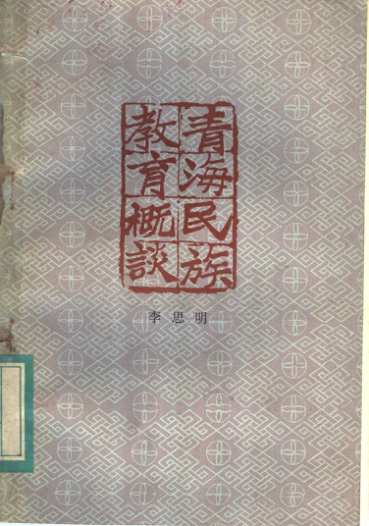 青海民族
教育概談
李思明